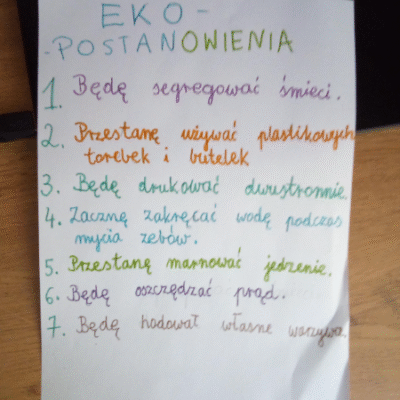 EKO-
-POSTANOWIENIA
1. Będę segregować śmieci.
2. Przestanę używać plastikowych
torebek i butelek
3. Będę drukować dwustronnie.
4. Zacznę zakręcać wodę podczas
mycia zębów.
5. Przestanę marnować jedzenie.
6. Będę oszczędzać prąd.
7. Będę hodował własne warzywa.